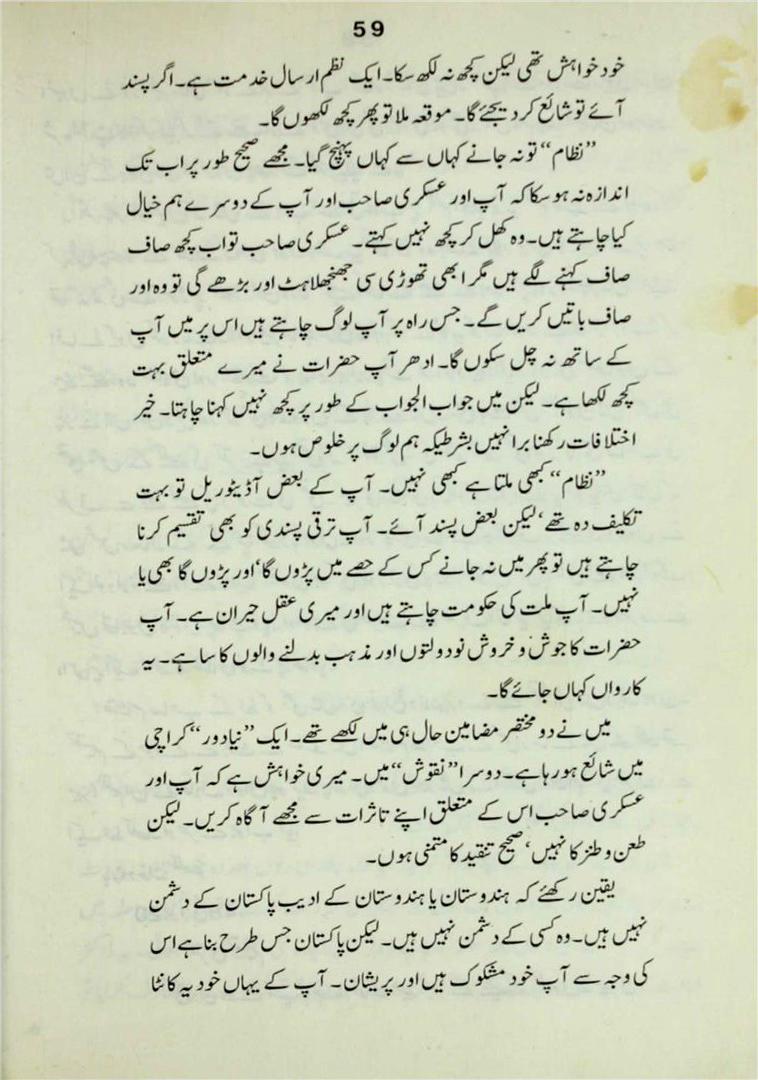 59
خود خواہش تھی لیکن کچھ نہ لکھ سکا۔ ایک نظم ارسال خدمت ہے۔ اگر پسند
آئے تو شائع کر دیجئے گا۔ موقعہ ملا تو پھر کچھ لکھوں گا۔
”نظام“ تو نہ جانے کہاں سے کہاں پہنچ گیا۔ مجھے صحیح طور پر اب تک
اندازہ نہ ہو سکا کہ آپ اور عسکری صاحب اور آپ کے دوسرے ہم خیال
کیا چاہتے ہیں۔ وہ کھل کر کچھ نہیں کہتے۔ عسکری صاحب تو اب کچھ صاف
صاف کہنے لگے ہیں مگر ابھی تھوڑی سی جھنجھلاہٹ اور بڑھے گی تو وہ اور
صاف باتیں کریں گے۔ جس راہ پر آپ لوگ چاہتے ہیں اس پر میں آپ
کے ساتھ نہ چل سکوں گا۔ ادھر آپ حضرات نے میرے متعلق بہت
کچھ لکھا ہے۔ لیکن میں جواب الجواب کے طور پر کچھ نہیں کہنا چاہتا۔ خیر
اختلافات رکھنا برا نہیں بشرطیکہ ہم لوگ پر خلوص ہوں۔
”نظام“ کبھی ملتا ہے کبھی نہیں۔ آپ کے بعض آڈیٹوریل تو بہت
تکلیف دہ تھے‘ لیکن بعض پسند آئے۔ آپ ترقی پسندی کو بھی تقسیم کرنا
چاہتے ہیں تو پھر میں نہ جانے کس کے حصے میں پڑوں گا‘ اور پڑوں گا بھی یا
نہیں۔ آپ ملت کی حکومت چاہتے ہیں اور میری عقل حیران ہے۔ آپ
حضرات کا جوش و خروش نودولتوں اور مذہب بدلنے والوں کا سا ہے۔ یہ
کارواں کہاں جائے گا۔
میں نے دو مختصر مضامین حال ہی میں لکھے تھے۔ ایک ”نیا دور“ کراچی
میں شائع ہو رہا ہے۔ دوسرا ”نقوش“ میں۔ میری خواہش ہے کہ آپ اور
عسکری صاحب اس کے متعلق اپنے تاثرات سے مجھے آگاہ کریں۔ لیکن
طعن و طنز کا نہیں‘ صحیح تنقید کا متمنی ہوں۔
یقین رکھئے کہ ہندوستان یا ہندوستان کے ادیب پاکستان کے دشمن
نہیں ہیں۔ وہ کسی کے دشمن نہیں ہیں۔ لیکن پاکستان جس طرح بنا ہے اس
کی وجہ سے آپ خود مشکوک ہیں اور پریشان۔ آپ کے یہاں خود یہ کانٹا